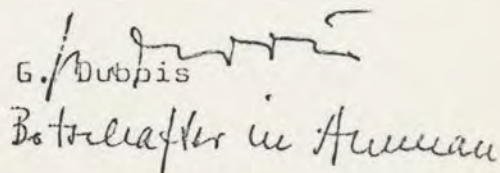 G. Dubois
Botschafter in Amman